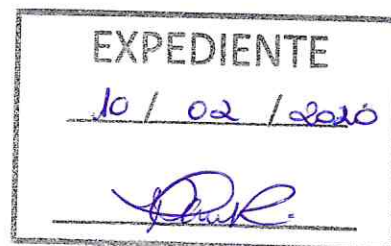 EXPEDIENTE
10 / 02 / 2020